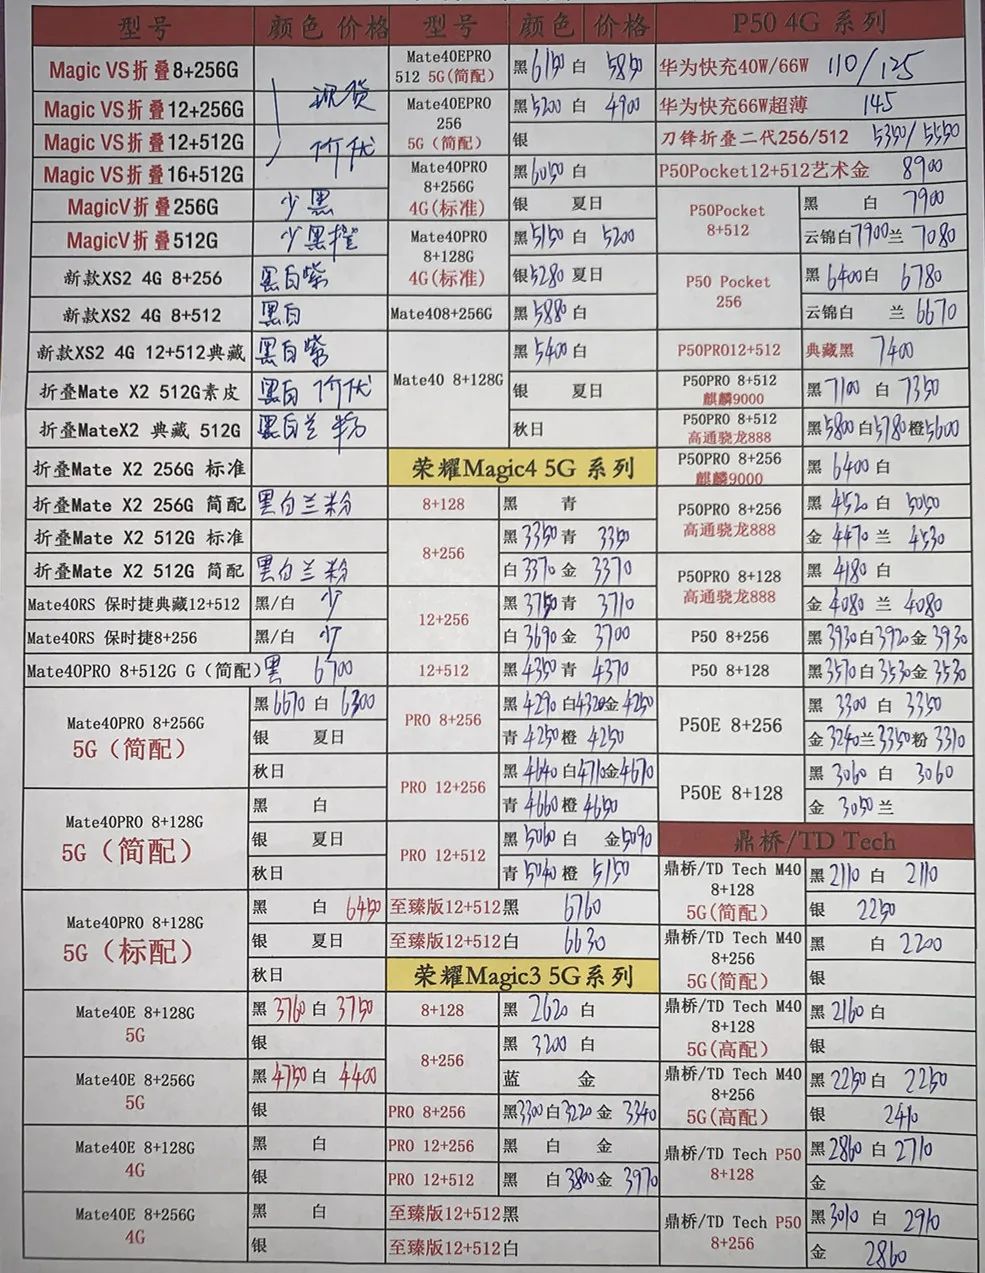 型号 颜色 价格
Magic VS折叠8+256G
Magic VS折叠12+256G 现货
Magic VS折叠12+512G 价优
Magic VS折叠16+512G
MagicV折叠256G 少黑
MagicV折叠512G 少黑橙
新款XS2 4G 8+256 黑白紫
新款XS2 4G 8+512 黑白
新款XS2 4G 12+512典藏 黑白紫
折叠Mate X2 512G素皮 黑白 价优
折叠MateX2 典藏 512G 黑白兰
折叠Mate X2 256G 标准
折叠Mate X2 256G 简配 黑白兰粉
折叠Mate X2 512G 标准
折叠Mate X2 512G 简配 黑白兰粉
Mate40RS 保时捷典藏12+512 黑/白 少
Mate40RS 保时捷8+256 黑/白 少
Mate40PRO 8+512G G（简配） 黑 6700
Mate40PRO 8+256G
5G（简配）
黑 6670 白 6300
银 夏日
秋日
Mate40PRO 8+128G
5G（简配）
黑 白
银 夏日
秋日
Mate40PRO 8+128G
5G（标配）
黑 白 6450
银 夏日
秋日
Mate40E 8+128G
5G
黑 3760 白 3750
银
Mate40E 8+256G
5G
黑 4750 白 4400
银
Mate40E 8+128G
4G
黑 白
银
Mate40E 8+256G
4G
黑 白
银
型号 颜色 价格
Mate40EPRO
512 5G(简配)
黑 6150 白 5850
Mate40EPRO
256
5G（简配）
黑 5200 白 4900
银
Mate40PRO
8+256G
4G(标准)
黑 6050 白
银 夏日
Mate40PRO
8+128G
4G(标准)
黑 5150 白 5200
银 5280 夏日
Mate408+256G 黑 5880 白
Mate40 8+128G
黑 5400 白
银 夏日
秋日
荣耀Magic4 5G 系列
8+128 黑 青
8+256
黑 3350 青 3350
白 3370 金 3370
12+256
黑 3750 青 3710
白 3690 金 3700
12+512 黑 4350 青 4370
PRO 8+256
黑 4290 白 4320 金 4250
青 4250 橙 4250
PRO 12+256
黑 4640 白 4710 金 4670
青 4660 橙 4650
PRO 12+512
黑 5060 白 金 5090
青 5040 橙 5150
至臻版12+512黑 6760
至臻版12+512白 6630
荣耀Magic3 5G系列
8+128 黑 2620 白
8+256
黑 3200 白
蓝 金
PRO 8+256 黑 3300 白 3220 金 3340
PRO 12+256 黑 白 金
PRO 12+512 黑 白 3800 金 3970
至臻版12+512黑
至臻版12+512白
P50 4G 系列
华为快充40W/66W 110/125
华为快充66W超薄 145
刀锋折叠二代256/512 5350/5550
P50Pocket12+512艺术金 8900
P50Pocket
8+512
黑 白 7900
云锦白 7900 兰 7080
P50 Pocket
256
黑 6400 白 6780
云锦白 兰 6670
P50PRO12+512 典藏黑 7400
P50PRO 8+512
麒麟9000
黑 7100 白 7350
P50PRO 8+512
高通骁龙888
黑 5800 白 5780 橙 5600
P50PRO 8+256
麒麟9000
黑 6400 白
P50PRO 8+256
高通骁龙888
黑 4520 白 5050
金 4470 兰 4530
P50PRO 8+128
高通骁龙888
黑 4180 白
金 4080 兰 4080
P50 8+256 黑 3930 白 3920 金 3930
P50 8+128 黑 3570 白 3530 金 3530
P50E 8+256
黑 3300 白 3350
金 3240 兰 3350 粉 3310
P50E 8+128
黑 3060 白 3060
金 3050 兰
鼎桥/TD Tech
鼎桥/TD Tech M40
8+128
5G(简配)
黑 2110 白 2110
银 2250
鼎桥/TD Tech M40
8+256
5G(简配)
黑 白 2200
银
鼎桥/TD Tech M40
8+128
5G(高配)
黑 2160 白
银
鼎桥/TD Tech M40
8+256
5G(高配)
黑 2250 白 2250
银 2410
鼎桥/TD Tech P50
8+128
黑 2860 白 2710
金
鼎桥/TD Tech P50
8+256
黑 3010 白 2910
金 2860